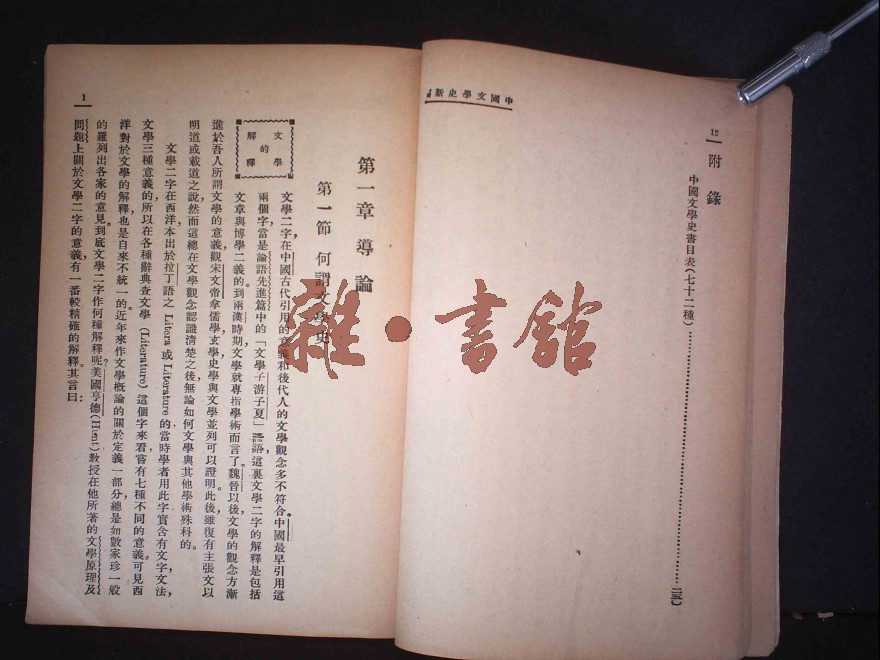 中國文學史新
12
附錄
中國文學史書目表(七十二種)
第一章 導論
第一節 何謂文學史
文學
的
解釋
文學二字,在中國古代引用的意義和後代人的文學觀念多不符合。中國最早引用這
兩個字,當是論語先進篇中的「文學子游子夏」一語,這裏文學二字的解釋是包括
文章與博學二義的。到兩漢時期,文學就專指學術而言了。魏晉以後,文學的觀念方漸
進於吾人所謂文學的意義,觀宋文帝拿儒學,玄學,史學與文學並列可以證明。此後,雖復有主張文以
明道或載道之說,然而這總在文學觀念認識清楚之後,無論如何文學與其他學術殊科的。
文學二字在西洋本出於拉丁語之 Litera 或 Literature 的,當時學者用此字實含有文字,文法,
文學三種意義的,所以在各種辭典查文學 (Literature) 這個字來看,嘗有七種不同的意義。可見西
洋對於文學的解釋,也是自來不統一的。近年來作文學概論的,關於定義一部分,總是如數家珍一般
的羅列出各家的意見。到底文學二字作何種解釋呢?美國亨德(Hunt)教授在他所著的文學原理及
問題上,關於文學二字的意義,有一番較精確的解釋。其言曰:
1
雜·書館